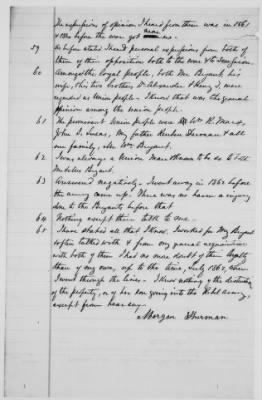 The expression of opinion I heard from them was in 1861
& 2 or before the war got near me.
59 As before stated I heard personal expressions from both of
them of their opposition both to the war & to Secession.
60 Amongst the loyal people, both Mr Bryant his
wife, & his two brothers Alexander & Henry J. were
regarded as Union people. I know that was the general
opinion among the Union people.
61 The prominent Union people were Wm H. Marx,
John I. Lucas, My father Reuben Sherman & all
our family, Mr Wm Bryant.
62 I was always a Union Man & known to be so to both
Mr & Mrs Bryant.
63 Answered negatively. I went away in 1862 before
the army came up. There was no harm or injury
done to the Bryants before that
64 Nothing except their talk to me.
65 I have stated all that I know. I worked for Mr Bryant
& often talked with & from my general acquaintance
with both of them I had no more doubt of their loyalty
than of my own, up to the time, July 1862, when
I went through the lines. I know nothing of the destruction
of the property, or of her son going into the Rebel army,
except from hearsay.
Morgan Sherman